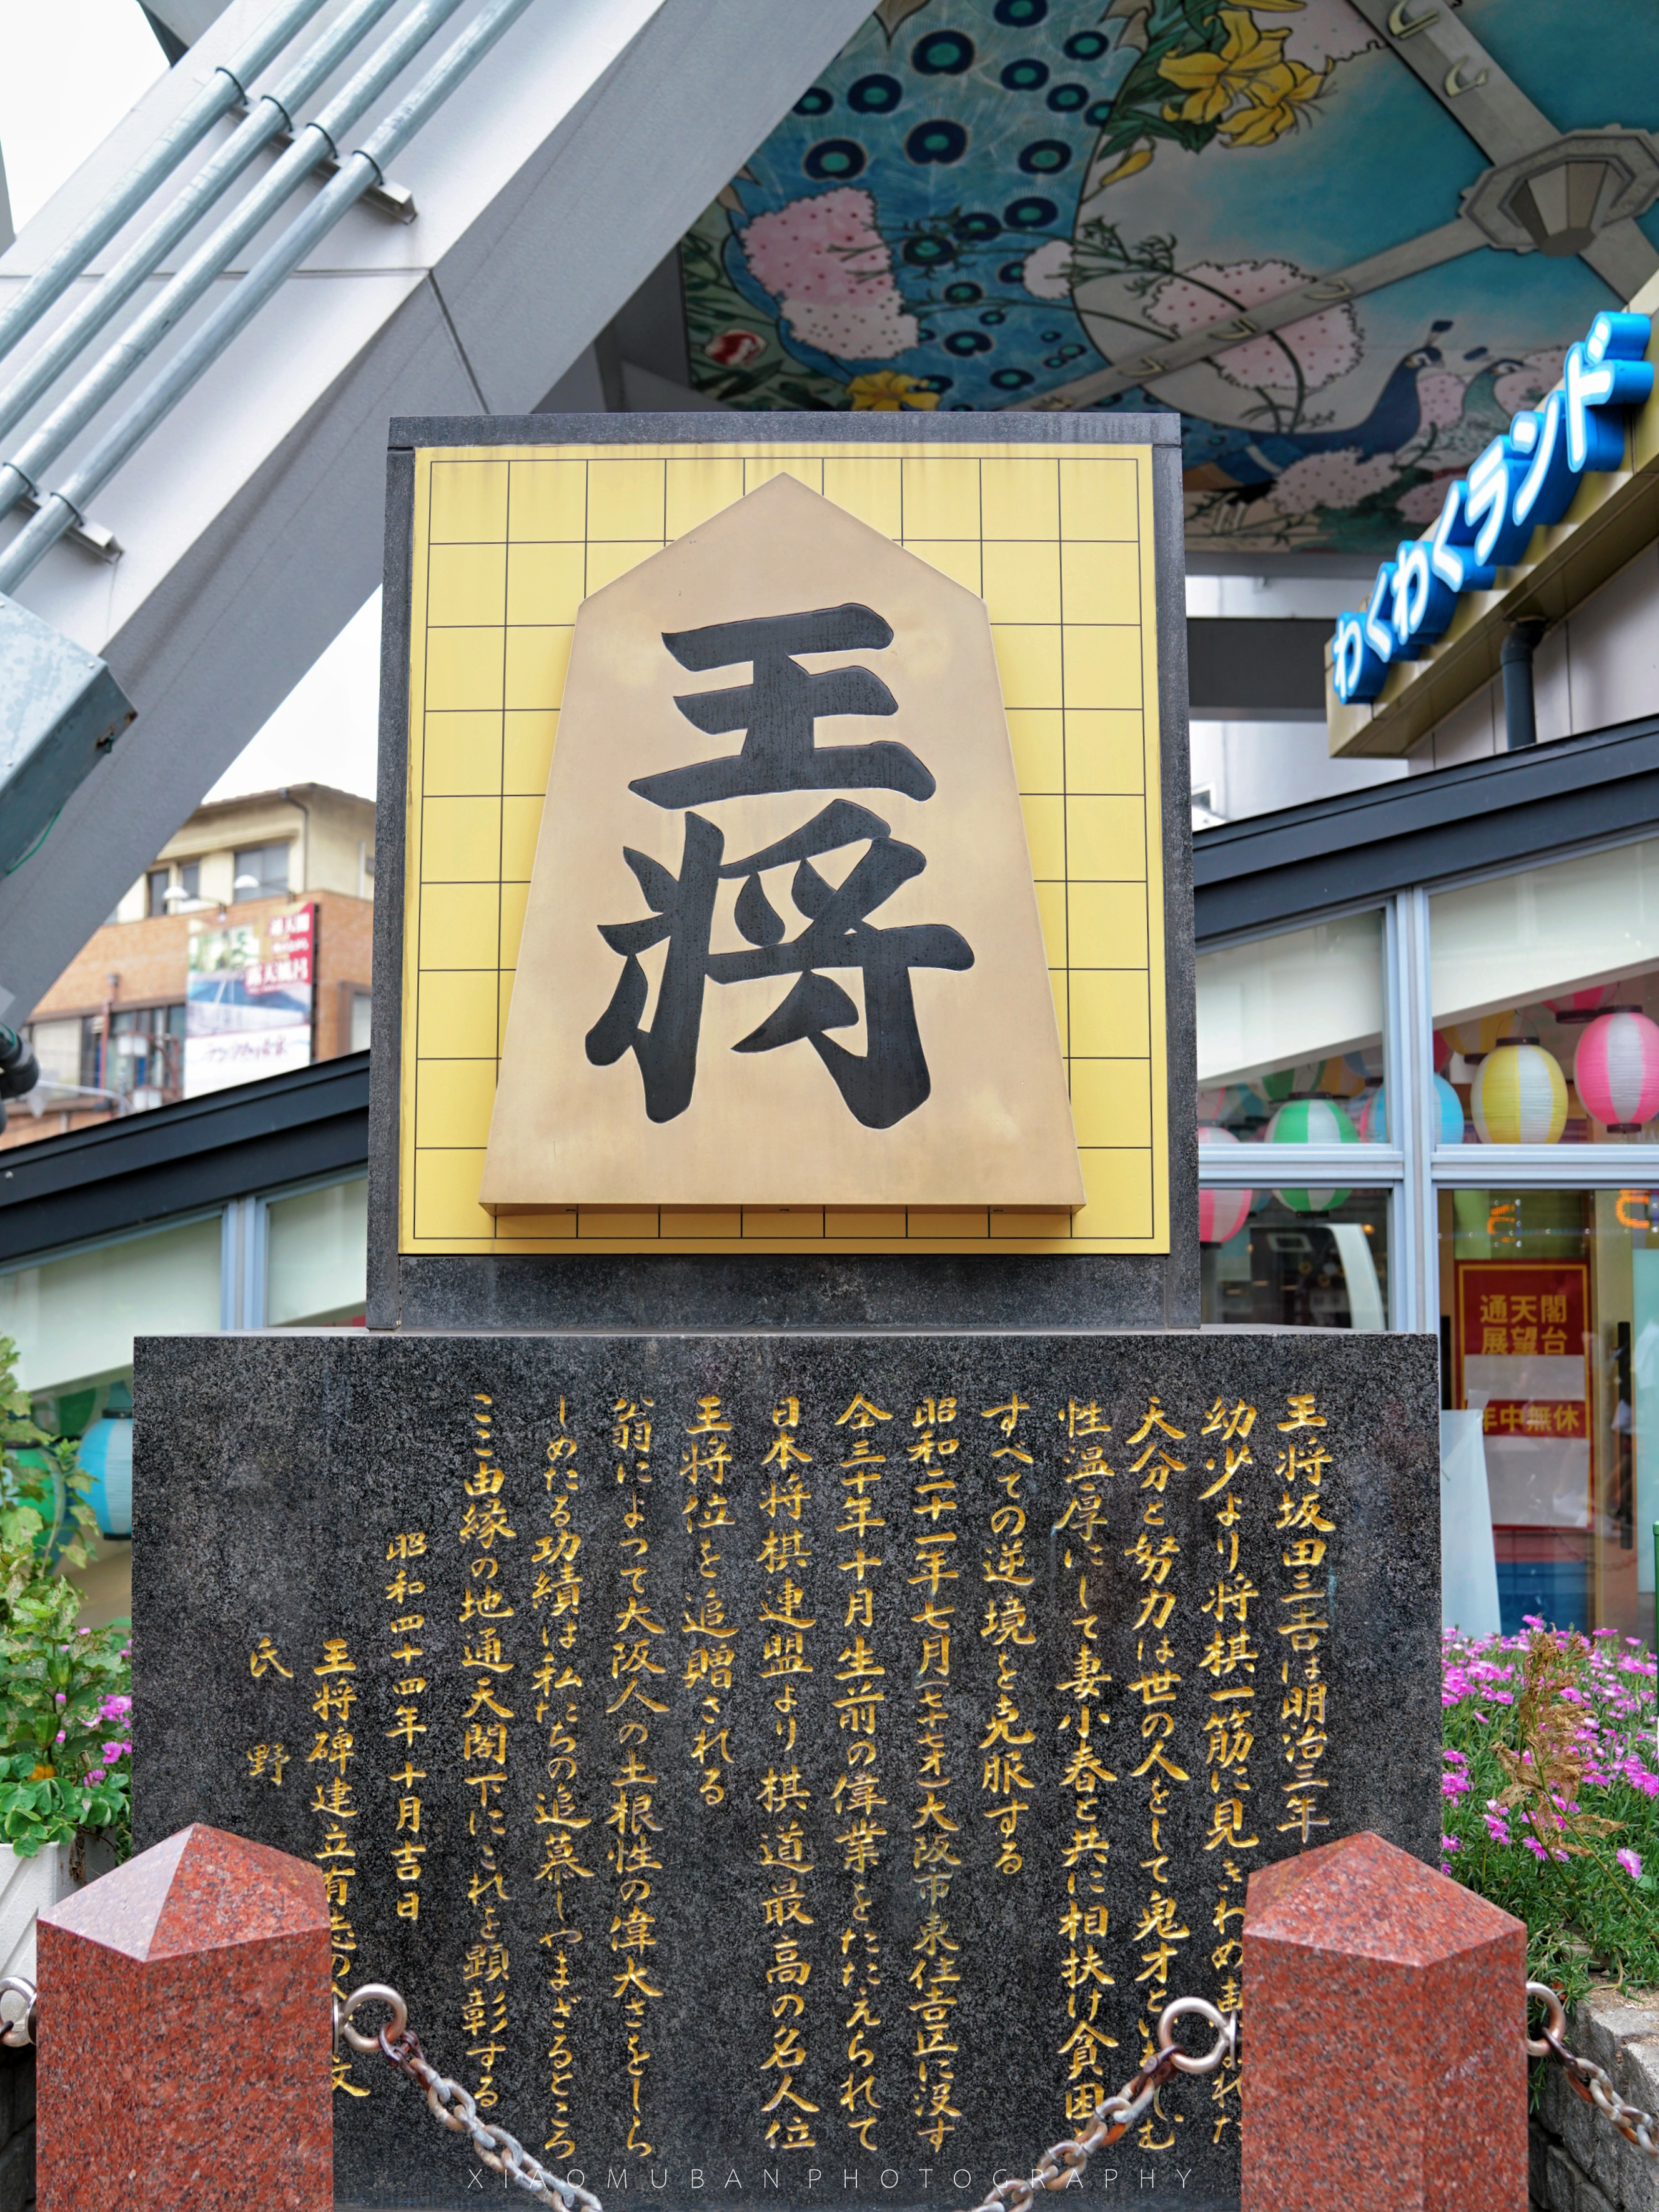 王将
わくわくランド
通天閣
展望台
年中無休
王将坂田三吉は明治三年
幼少より将棋一筋に見きわめ
天分と努力は世の人をして鬼才と
性温厚にして妻小春と共に相扶け貧困
すべての逆境を克服する
昭和二十一年七月(七十七才)大阪市東住吉区に没す
仝三十年十月生前の偉業をたたえられて
日本将棋連盟より棋道最高の名人位
王将位を追贈される
翁によって大阪人の土根性の偉大さをしら
しめたる功績は私たちの追慕しやまざるところ
ここ由縁の地通天閣下にこれを顕彰する
昭和四十四年十月吉日
王将碑建立有志
氏野
XIAOMUBAN PHOTOGRAPHY